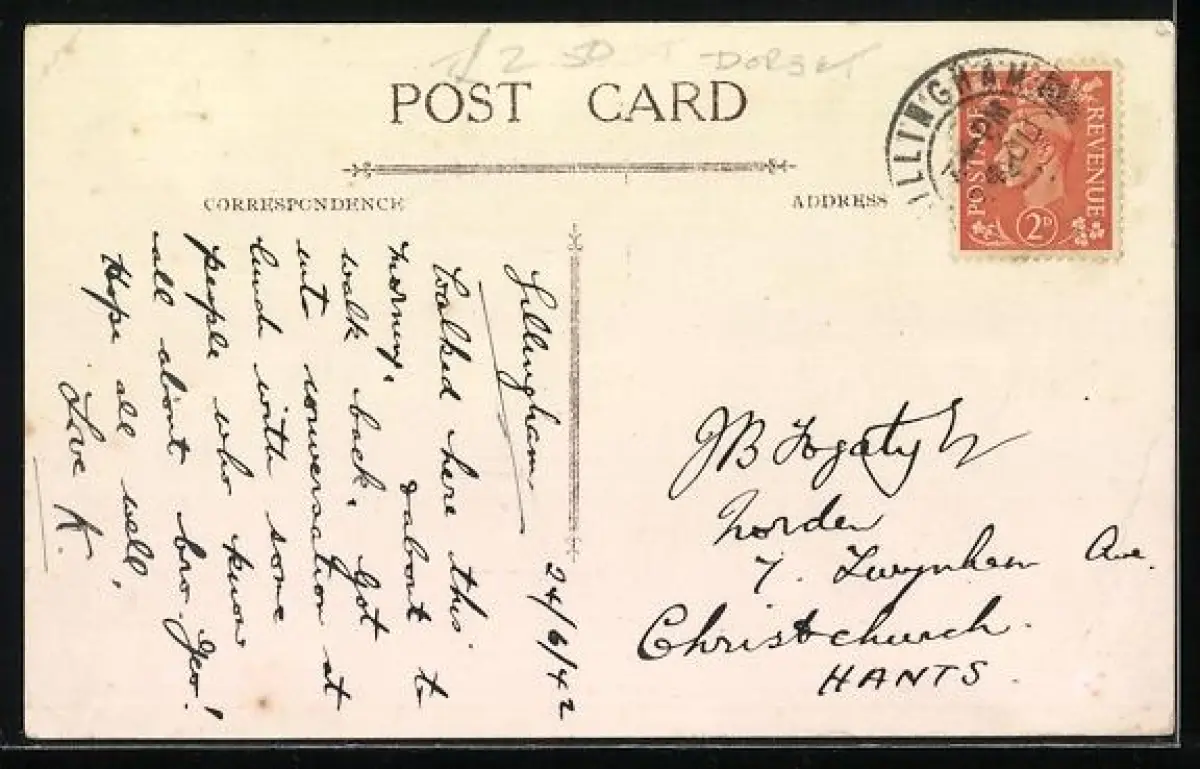 DORSET
POST CARD
CORRESPONDENCE
ADDRESS
ILLINGHAM
PM
POSTAGE
REVENUE
2D
Gillingham
24/6/42
Walked here this
morning. &about to
walk back. Got
into conversation at
lunch with some
people who know
all about bro. Geo!
Hope all well,
Love K.
JB Fogaty
Norden
7. Twynham Ave.
Christchurch.
HANTS.